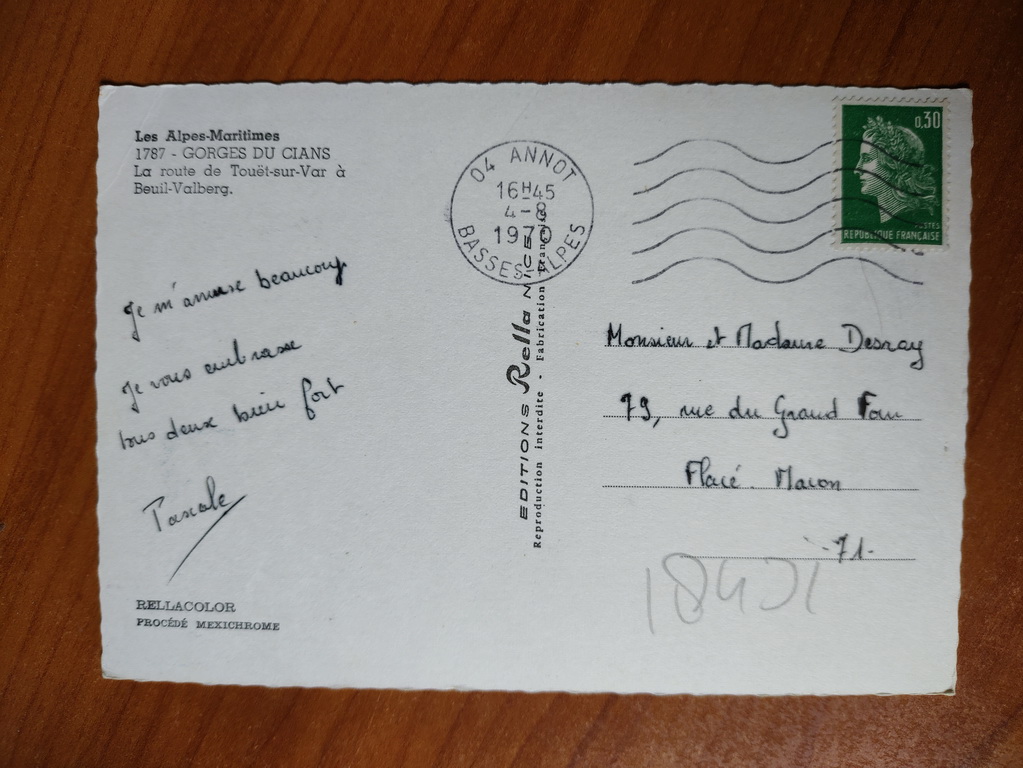 Les Alpes-Maritimes
1787 - GORGES DU CIANS
La route de Touët-sur-Var à
Beuil-Valberg.
Je m'amuse beaucoup.
Je vous embrasse
tous deux bien fort
Pascale
RELLACOLOR
PROCÉDÉ MEXICHROME
04 ANNOT
16H45
4-8
1970
BASSES-ALPES
EDITIONS Rella NICE
Reproduction interdite - Fabrication Française
0,30
POSTES
REPUBLIQUE FRANÇAISE
Monsieur et Madame Desray
79, rue du Grand Four
Flacé. Macon
-71-